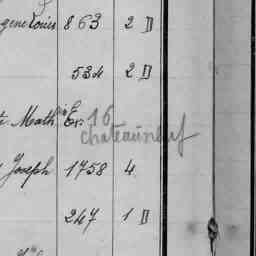 gène Louis 863 2 D
534 2 D
Math 16
chateauneuf
Joseph 1758 4
247 1 D